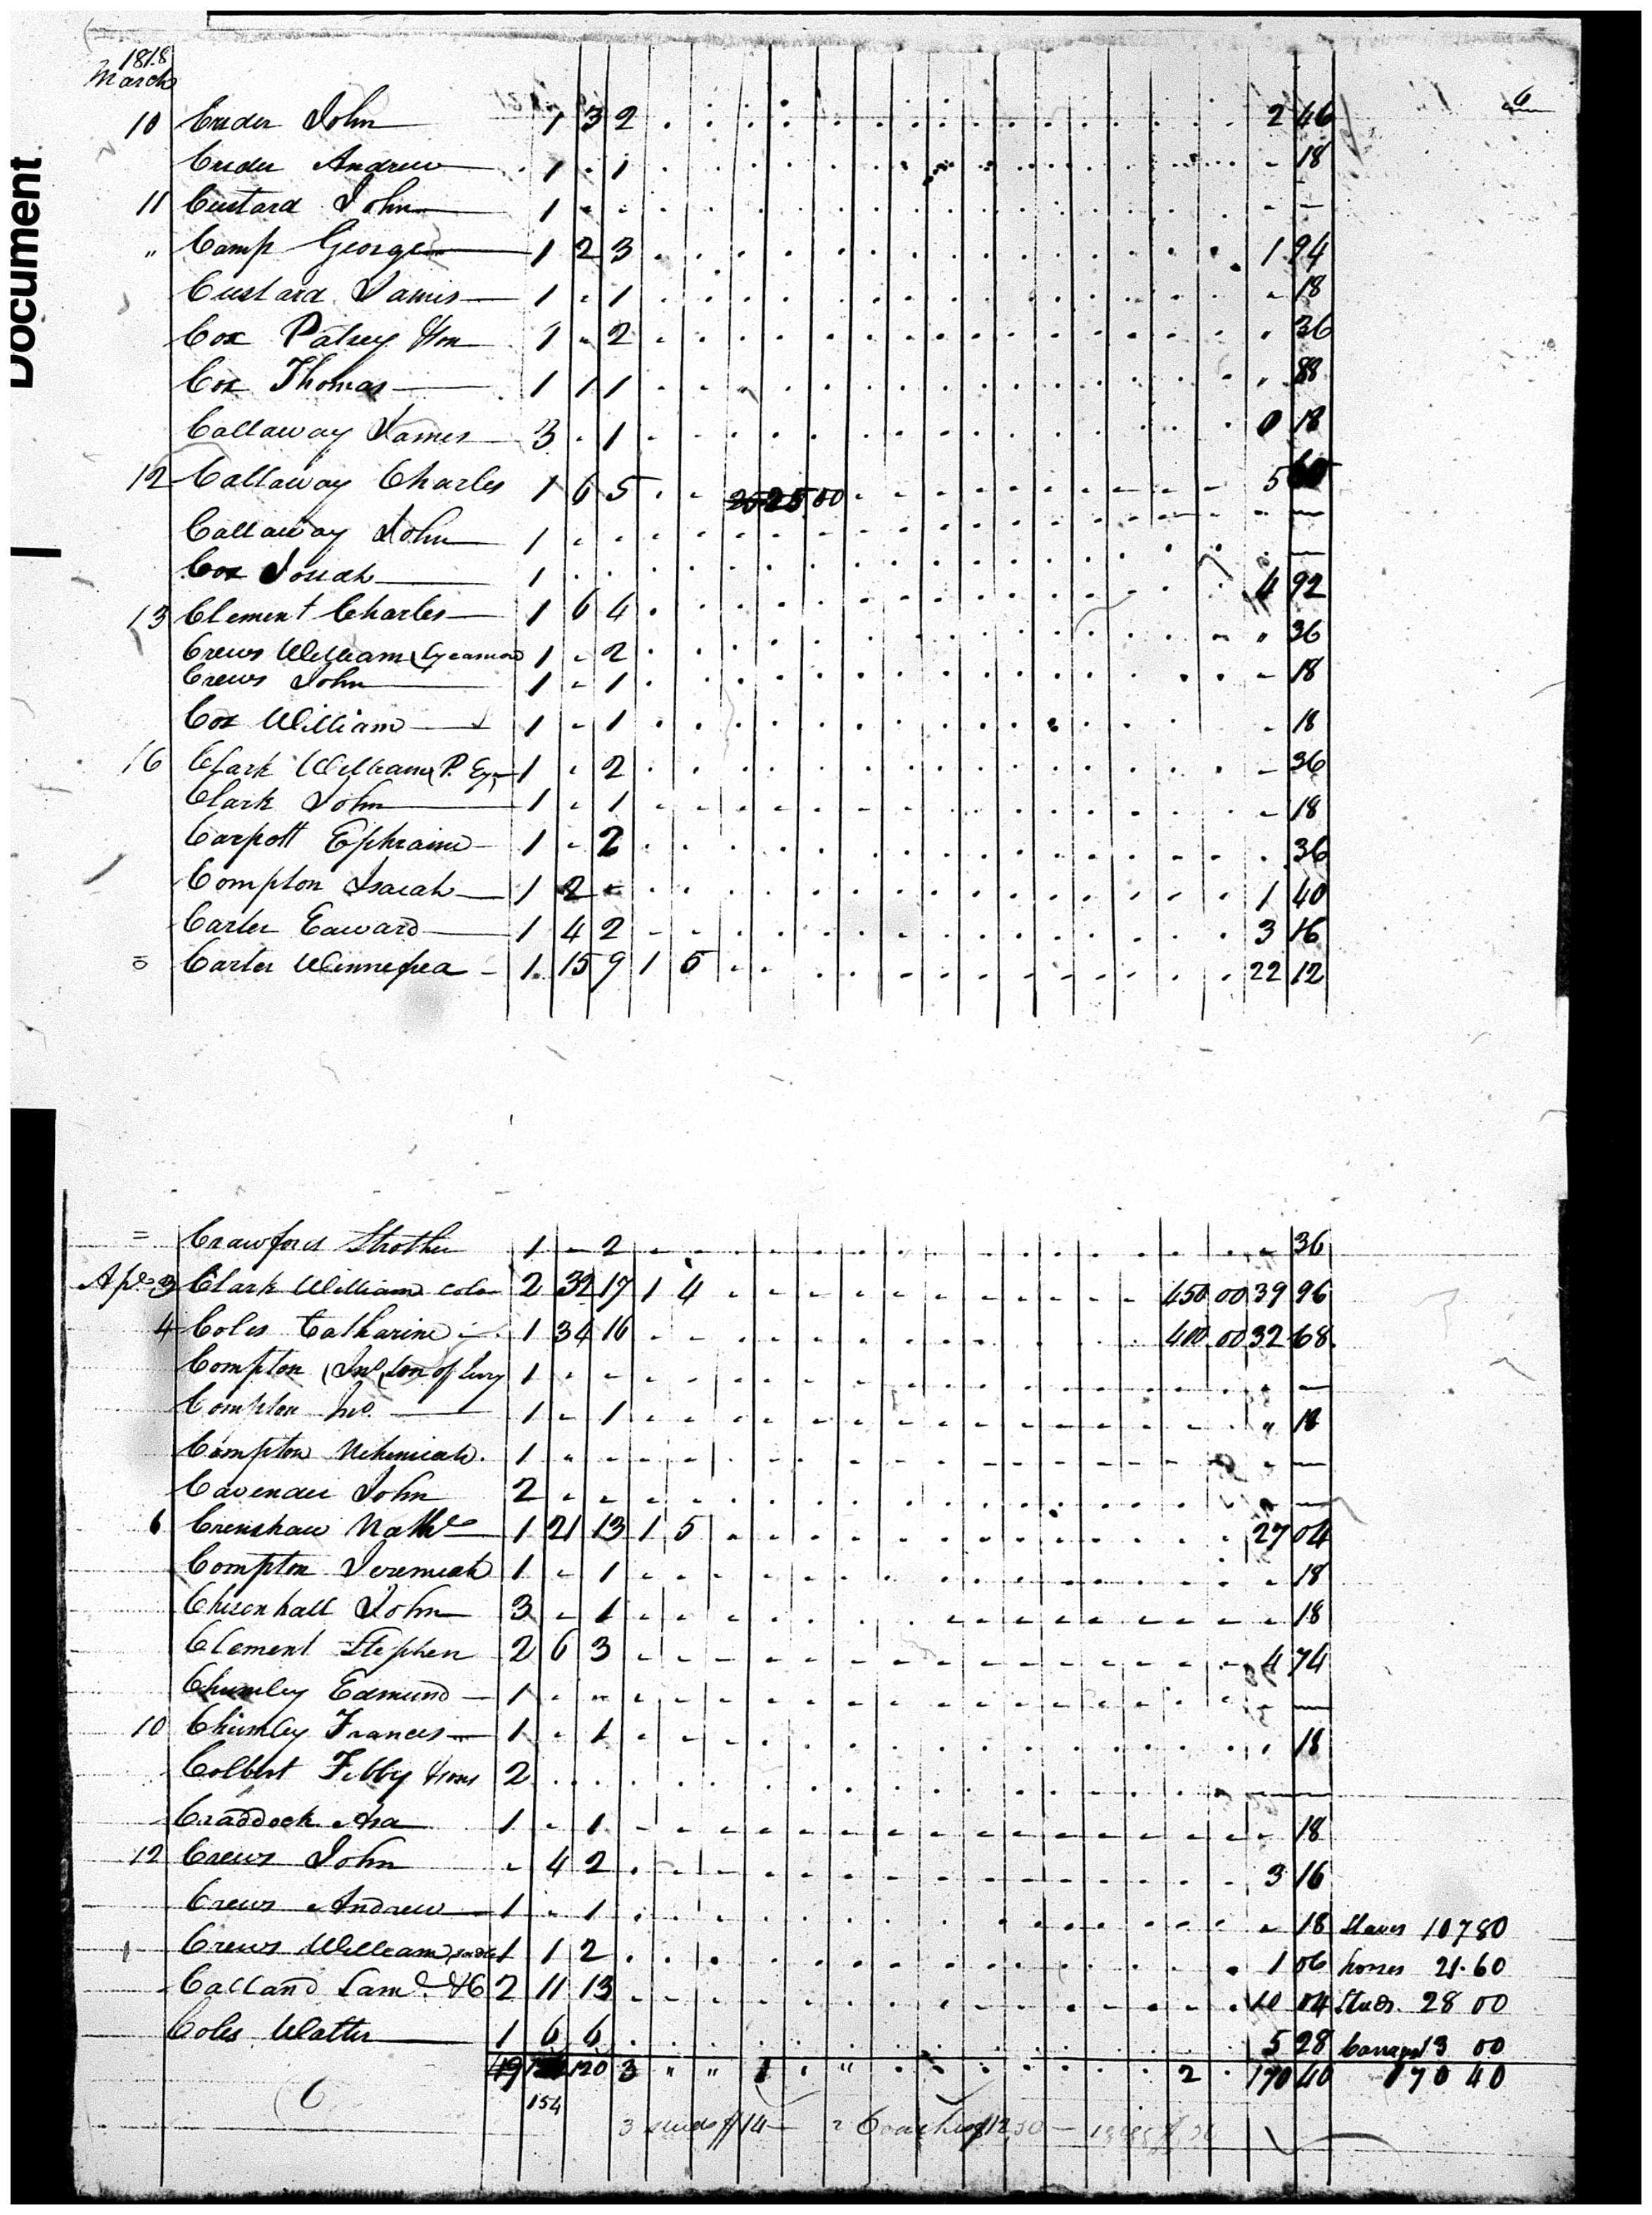 Document
1818
March
6
10 Crider John 1 3 2 2 46
Crider Andrew 1 . 1 - 18
11 Custard John 1 - - - —
" Camp George 1 2 3 1 94
Custard James 1 - 1 - 18
Cox Patsey & son 1 - 2 " 36
Cox Thomas 1 1 1 " 88
Callaway James 3 . 1 0 18
12 Callaway Charles 1 6 5 25 25.00 5
Callaway John 1 - - - —
Cox Josiah 1 . . . —
13 Clement Charles 1 6 4 4 92
Crews William (Sycamore) 1 - 2 " 36
Crews John 1 - 1 - 18
Cox William 1 - 1 - 18
16 Clark William P. 1 - 2 - 36
Clark John 1 - 1 - 18
Carpott Ephraim 1 - 2 . 36
Compton Isaiah 1 2 - 1 40
Carter Edward 1 4 2 3 16
Carter Winnefrea 1 15 9 1 5 22 12
= Crawford Strother 1 - 2 - 36
Apl 3 Clark William Colo 2 32 17 1 4 450 00 39 96
4 Coles Catharine 1 34 16 400 00 32 68
Compton Jno son of 1 - - . —
Compton Jno. 1 - 1 " 18
Compton Nehemiah. 1 - - - —
Cavender John 2 - - " —
6 Crenshaw Nathl 1 21 13 1 5 27 04
Compton Jeremiah 1 - 1 - 18
Chisenhall John 3 - 1 - 18
Clement Stephen 2 6 3 4 74
Chumley Edmund 1 - - - —
10 Chumley Frances 1 - 1 . 18
Colbert Febby & sons 2 . . —
Craddock Asa 1 - 1 - 18
12 Crews John - 4 2 3 16
Crews Andrew 1 - 1 - 18 Slaves 107 80
Crews William 1 1 2 1 06 horses 21.60
Calland Saml. & Co 2 11 13 10 04 Studs 28 00
Coles Walter 1 6 6 5 28 Carriages 13 00
49 120 3 " " 1 " 2 170 40 170 40
154
C
3 studs $14 — 2 Coaches $12.50